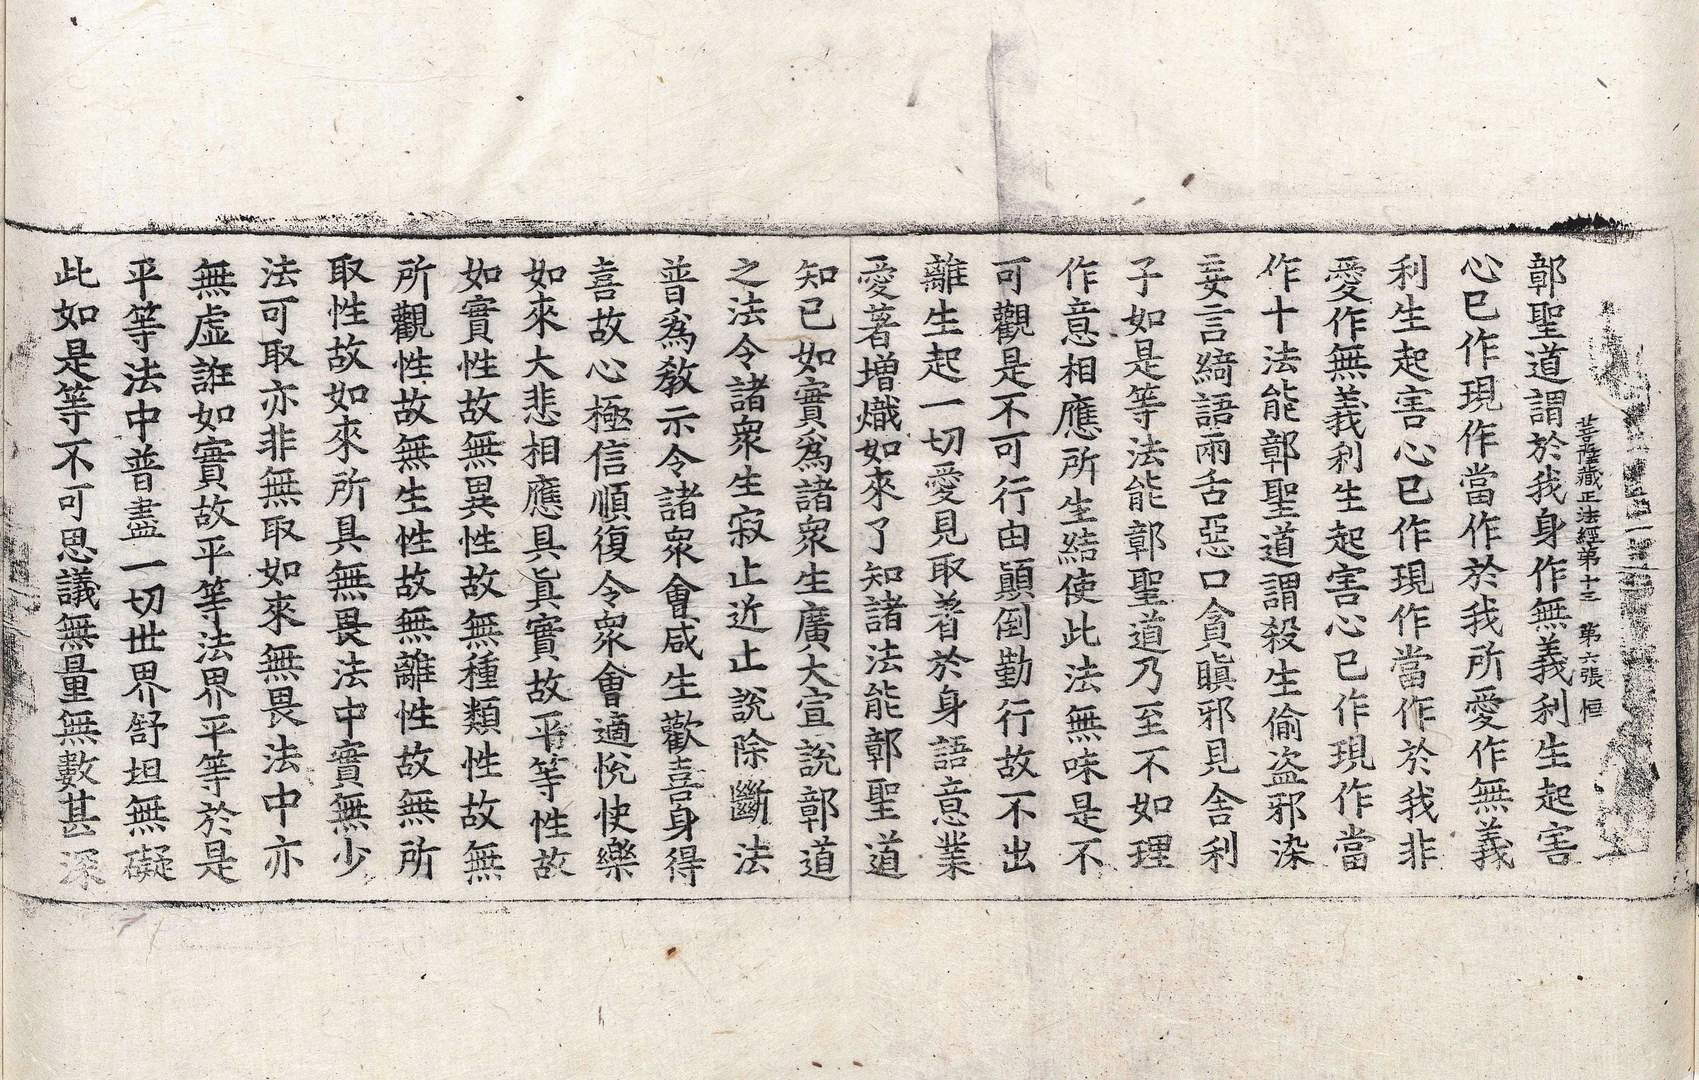 菩薩藏正法經第十三　第六張　恒
鄣聖道謂於我身作無義利生起害
心已作現作當作於我所愛作無義
利生起害心已作現作當作於我非
愛作無義利生起害心已作現作當
作十法能鄣聖道謂殺生偷盜邪染
妄言綺語兩舌惡口貪瞋邪見舍利
子如是等法能鄣聖道乃至不如理
作意相應所生結使此法無味是不
可觀是不可行由顚倒勤行故不出
離生起一切愛見取着於身語意業
愛著增熾如來了知諸法能鄣聖道
知已如實爲諸衆生廣大宣說鄣道
之法令諸衆生寂止近止說除斷法
普爲敎示令諸衆會咸生歡喜身得
喜故心極信順復令衆會適悅快樂
如來大悲相應具眞實故平等性故
如實性故無異性故無種類性故無
所觀性故無生性故無離性故無所
取性故如來所具無畏法中實無少
法可取亦非無取如來無畏法中亦
無虛誑如實故平等法界平等於是
平等法中普盡一切世界舒坦無礙
此如是等不可思議無量無數甚深